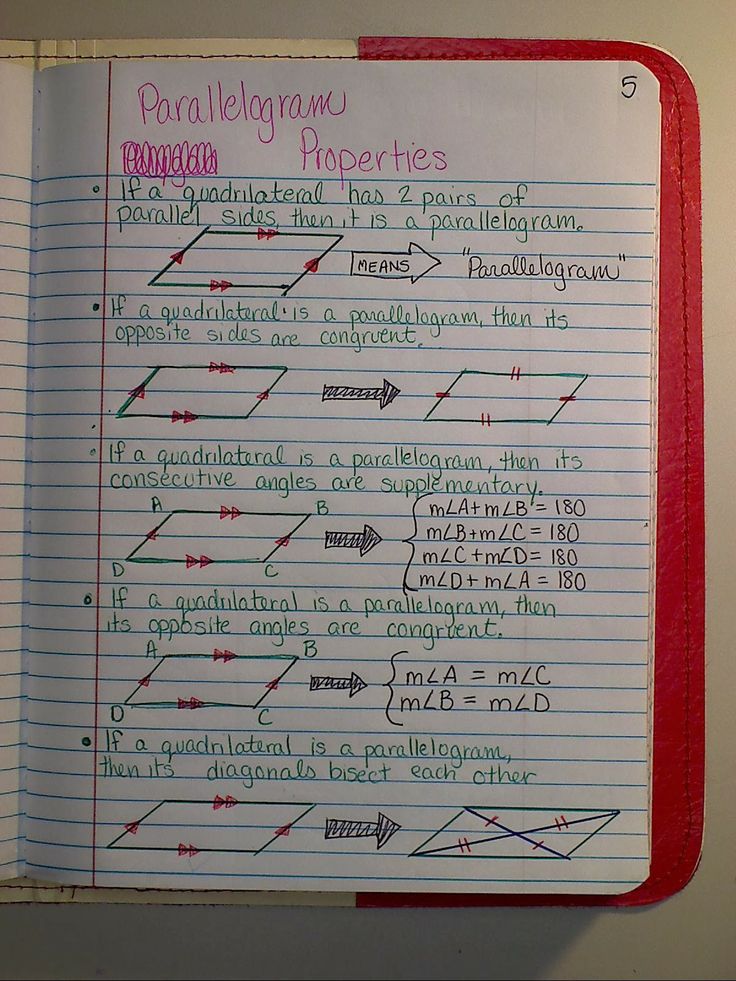 5
Parallelogram
Properties
• If a quadrilateral has 2 pairs of
parallel sides, then it is a parallelogram.
MEANS
"Parallelogram"
• If a quadrilateral is a parallelogram, then its
opposite sides are congruent.
• If a quadrilateral is a parallelogram, then its
consecutive angles are supplementary.
A B
D C
m∠A + m∠B = 180
m∠B + m∠C = 180
m∠C + m∠D = 180
m∠D + m∠A = 180
• If a quadrilateral is a parallelogram, then
its opposite angles are congruent.
A B
D C
m∠A = m∠C
m∠B = m∠D
• If a quadrilateral is a parallelogram,
then its diagonals bisect each other